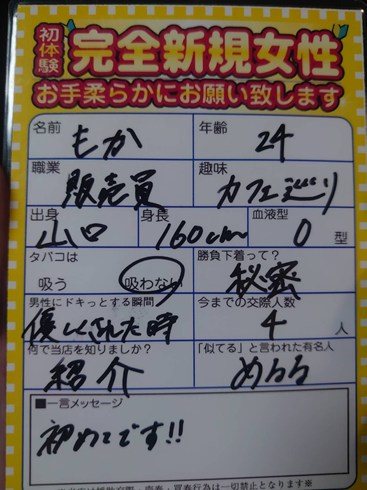 初体験
完全新規女性
お手柔らかにお願い致します
名前 もか 年齢 24
職業 販売員 趣味 カフェ巡り
出身 山口 身長 160cm 血液型 O 型
タバコは 吸う 吸わない 勝負下着って? 秘密
男性にドキっとする瞬間 優しくされた時 今までの交際人数 4 人
何で当店を知りましたか? 紹介 「似てる」と言われた有名人 めるる
■一言メッセージ
初めてです!!
売春・買春行為は一切禁止となります※